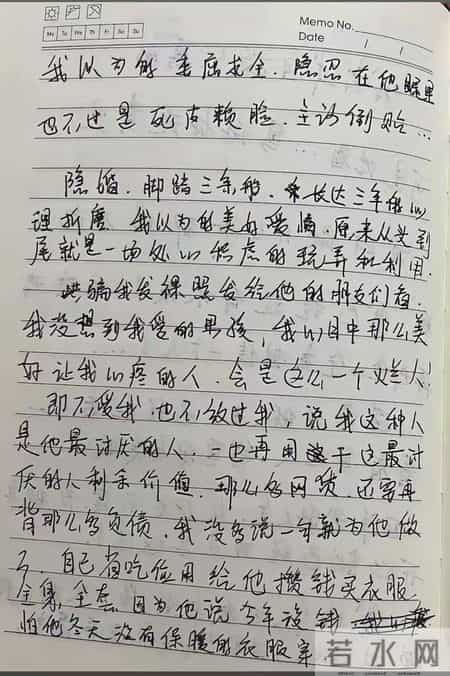 Memo No.
Mo Tu We Th Fr Sa Su
Date / /
我以为的委屈求全.隐忍在他眼里
也不过是死皮赖脸.主动倒贴…
隐婚.脚踏三条船.长达三年的心
理折磨.我以为的美好爱情.原来从头到
尾就是一场处心积虑的玩弄和利用.
哄骗我发裸照发给他的朋友们看.
我没想到我爱的男孩,我心目中那么美
好让我心疼的人.会是这么一个烂人!
即不爱我.也不放过我,说我这种人
是他最讨厌的人.一边再用这最讨
厌的人利余价值.那么多网贷.还需再
背那么多负债.我没多说一句就为他做
了.自己省吃俭用给他攒钱买衣服
全身.全套.因为他说今年没钱
怕他冬天没有保暖的衣服穿.
若水网